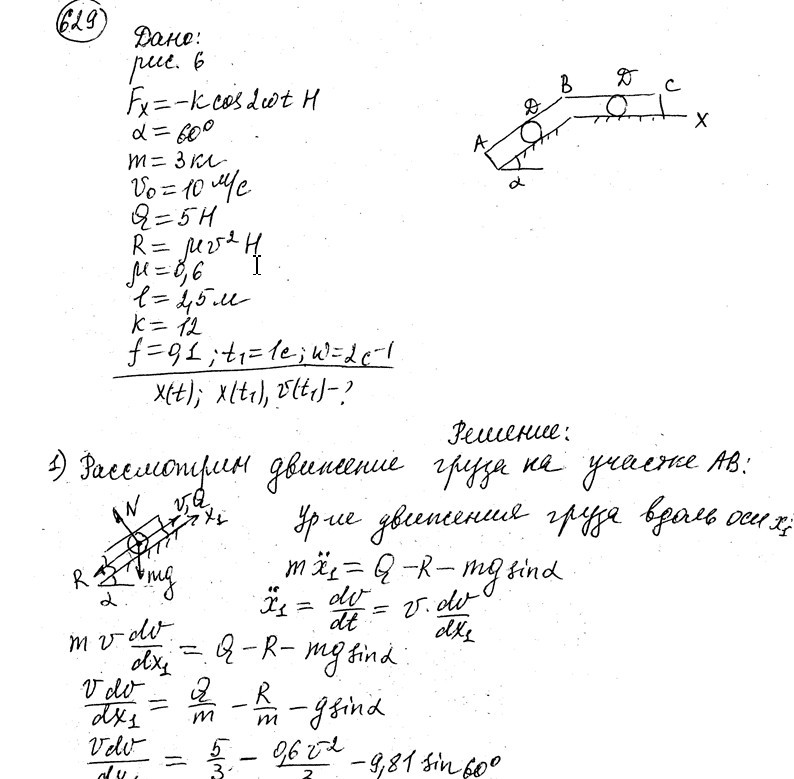 629
Дано:
рис. 6
Fx = -k cos 2ωt Н
α = 60°
m = 3 кг
v₀ = 10 м/с
Q = 5 Н
R = μv² Н
μ = 0,6
l = 2,5 м
k = 12
f = 0,1 ; t₁ = 1с ; ω = 2 с⁻¹
x(t); x(t₁), v(t₁) - ?
A
D
B
D
C
X
α
Решение:
1) Рассмотрим движение груза на участке АВ:
N
v, Q
x₁
R
mg
α
Ур-ие движения груза вдоль оси x₁:
mẍ₁ = Q - R - mg sinα
ẍ₁ = dv/dt = v · dv/dx₁
m v dv/dx₁ = Q - R - mg sinα
vdv/dx₁ = Q/m - R/m - g sinα
vdv/dx₁ = 5/3 - 0,6v²/3 - 9,81 sin 60°